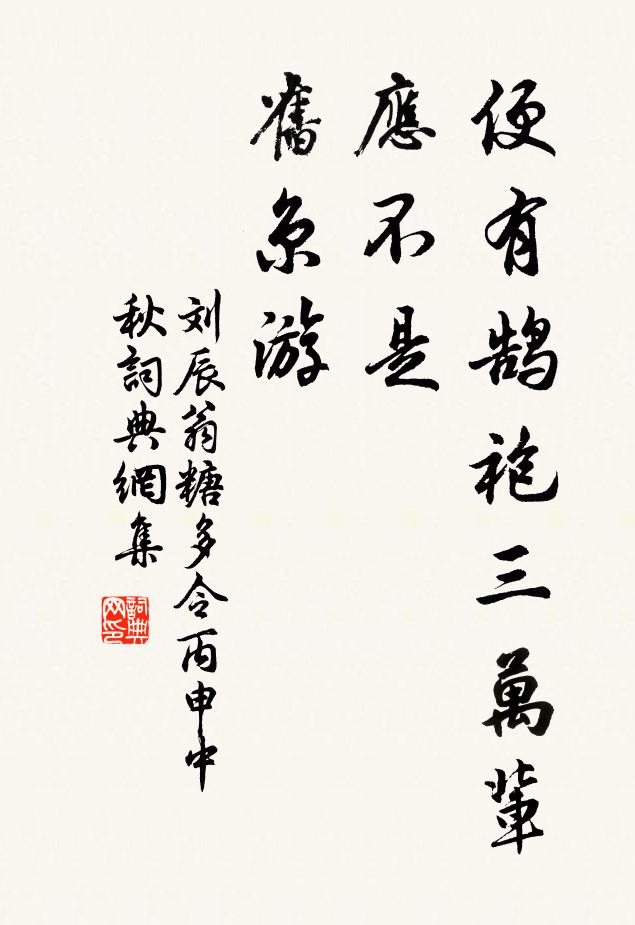 便有鹄袍三萬輩
應不是
舊京游
刘辰翁糖多令丙申中
秋詞典網集
詞典
网印